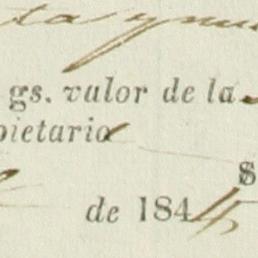 ta y nu
gs. valor de la
pietario
$
de 1845